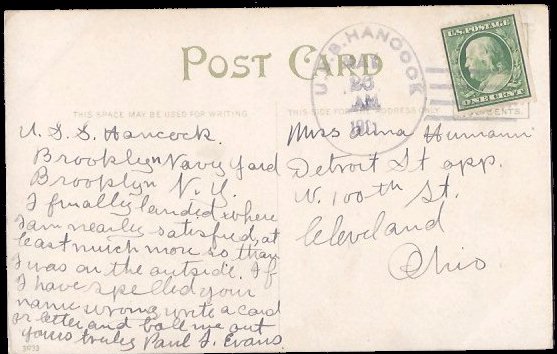 POST CARD
THIS SPACE MAY BE USED FOR WRITING
THIS SIDE FOR ADDRESS ONLY
U.S.S. HANCOCK
MAR
23
AM
1911
U.S. POSTAGE
ONE CENT
U. S. S. Hancock.
Brooklyn Navy Yard
Brooklyn N. Y.
I finally landed where
I am nearly satisfied, at
least much more so than
I was on the outside. If
I have spelled your
name wrong write a card
or letter and ball me out
yours truly Paul J. Evans
3933
Miss Alma Humann
Detroit St app.
W. 100th St.
Cleveland
Ohio